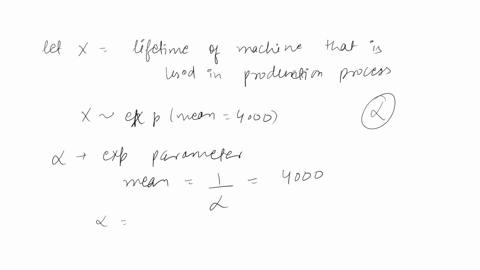 let X = lifetime of machine that is
used in production process
X ~ exp (mean = 4000)
α
α → exp parameter
mean = 1/α = 4000
α =